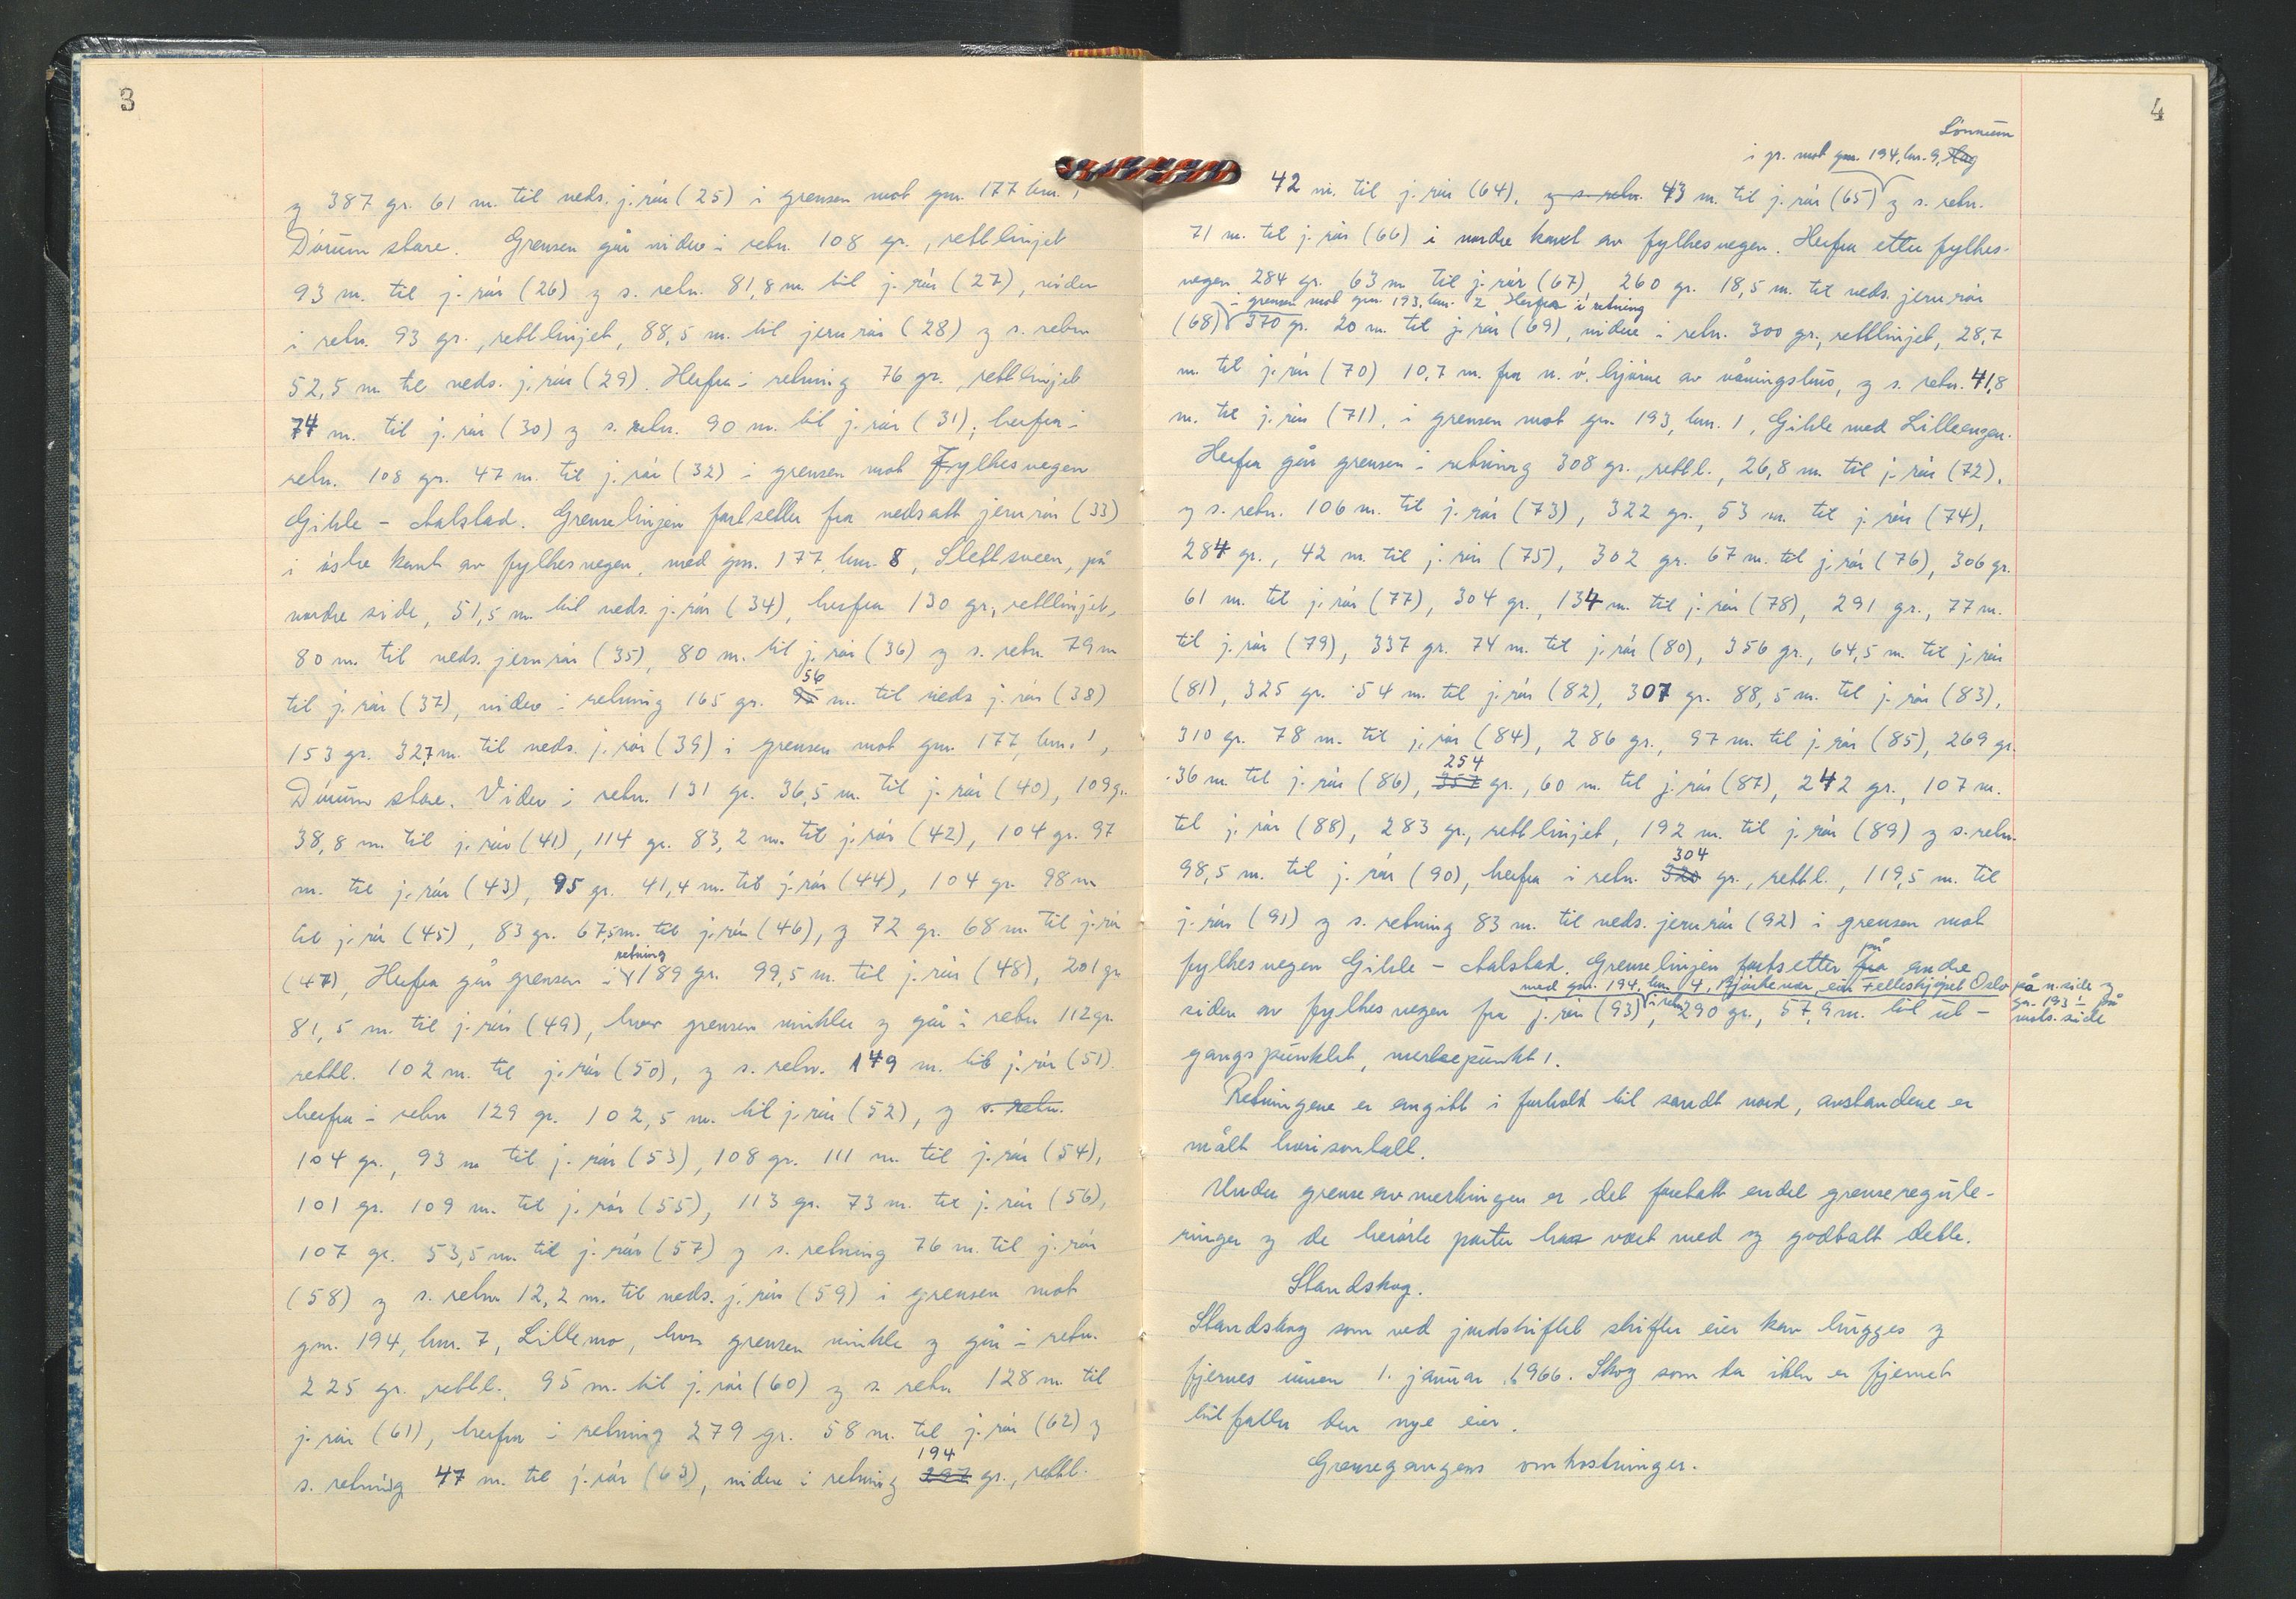 3
og 387 gr. 61 m. til neds. j.rör (25) i grensen mot gnr. 177 bnr. 1
Dörum store. Grensen går videre i retn. 108 gr., rettlinjet
93 m. til j. rör (26) og s. retn. 81,8 m. til j. rör (27), videre
i retn. 93 gr., rettlinjet, 88,5 m. til jern rör (28) og s. retn
52,5 m til neds. j. rör (29). Herfra i retning 76 gr., rettlinjet
74 m. til j. rör (30) og s. retn. 90 m. til j. rör (31), herfra i
retn. 108 gr. 47 m. til j. rör (32) i grensen mot Fylkesvegen
Gihle - Aalstad. Grenselinjen fortsetter fra nedsatt jern rör (33)
i östre kant av fylkesvegen, med gnr. 177, bnr. 8, Slettsveen, på
nordre side, 51,5 m. til neds. j. rör (34), herfra 130 gr., rettlinjet,
80 m. til neds. jern rör (35), 80 m. til j. rör (36) og s. retn. 79 m
til j. rör (37), videre i retning 165 gr. 95 56 m. til neds j. rör (38)
153 gr. 32,7 m. til neds. j. rör (39) i grensen mot gnr. 177, bnr. 1,
Dörum store. Videre i retn. 131 gr. 36,5 m. til j. rör (40), 109 gr.
38,8 m. til j. rör (41), 114 gr. 83,2 m. til j. rör (42), 104 gr. 97
m. til j. rör (43), 95 gr. 41,4 m. til j. rör (44), 104 gr. 98 m
til j. rör (45), 83 gr. 67,5 m. til j. rör (46), og 72 gr. 68 m. til j. rör
(47), Herfra går grensen i retning 189 gr. 99,5 m. til j. rör (48), 201 gr
81,5 m. til j. rör (49), hvor grensen vinkler og går i retn 112 gr.
rettl. 102 m. til j. rör (50), og s. retn. 149 m. til j. rör (51).
herfra i retn 129 gr. 102,5 m. til j. rör (52), og s. retn.
104 gr., 93 m til j. rör (53), 108 gr. 111 m. til j. rör (54),
101 gr. 109 m. til j. rör (55), 113 gr. 73 m. til j. rör (56),
107 gr. 53,5 m. til j. rör (57) og s. retning 76 m. til j. rör
(58) og s. retn 12,2 m. til neds. j. rör (59) i grensen mot
gnr. 194, bnr. 7, Lillemo, hvor grensen vinkler og går i retn.
225 gr., rettl., 95 m. til j. rör (60) og s. retn. 128 m. til
j. rör (61), herfra i retning 279 gr. 58 m. til j. rör (62) og
s. retning 47 m. til j. rör (63), videre i retning 297 194 gr., rettl.
4
Lönnum
i gr. mot gnr. 194, bnr. 9, Hag
42 m. til j. rör (64), og s. retn. 43 m. til j. rör (65) og s. retn.
71 m. til j. rör (66) i nordre kant av fylkesvegen. Herfra etter fylkes-
vegen 284 gr. 63 m. til j. rör (67), 260 gr. 18,5 m. til neds. jern rör
i grensen mot gnr. 193, bnr. 2 Herfra i retning
(68) 370 gr. 20 m. til j. rör (69), videre i retn. 300 gr., rettlinjet, 28,7
m. til j. rör (70) 10,7 m. fra n. ö. hjörne av våningshus, og s. retn. 41,8
m. til j. rör (71), i grensen mot gnr. 193, bnr. 1, Gihle med Lilleengen.
Herfra går grensen i retning 308 gr., rettl., 26,8 m. til j. rör (72),
og s. retn. 106 m. til j. rör (73), 322 gr., 53 m. til j. rör (74),
284 gr., 42 m. til j. rör (75), 302 gr. 67 m. til j. rör (76), 306 gr.
61 m. til j. rör (77), 304 gr., 134 m. til j. rör (78), 291 gr., 77 m.
til j. rör (79), 337 gr. 74 m. til j. rör (80), 356 gr., 64,5 m. til j. rör
(81), 325 gr. 54 m. til j. rör (82), 307 gr. 88,5 m. til j. rör (83),
310 gr. 78 m. til j. rör (84), 286 gr., 97 m. til j. rör (85), 269 gr.
36 m. til j. rör (86), 357 254 gr., 60 m. til j. rör (87), 242 gr., 107 m.
til j. rör (88), 283 gr., rettlinjet, 192 m. til j. rör (89) og s. retn.
98,5 m. til j. rör (90), herfra i retn. 320 304 gr., rettl., 119,5 m. til
j. rör (91) og s. retning 83 m. til neds. jern rör (92) i grensen mot
fylkesvegen Gihle - Aalstad. Grenselinjen fortsetter fra på andre
med gnr. 194, bnr. 4, Bjerkevær, eier Felleskjöpet Oslo på n. side og
gnr. 193/1 på
mots. side
siden av fylkesvegen fra j. rör (93), i retn 290 gr., 57,9 m. til ut-
gangspunktet, merkepunkt 1.
Retningene er angitt i forhold til sandt nord, avstandene er
målt horisontalt.
Under grenseavmerkingen er det foretatt endel grenseregule-
ringer og de berörte parter har vært med og godtatt dette.
Standskog.
Standskog som ved jordskiftet skifter eier kan hugges og
fjernes innen 1. januar 1966. Skog som da ikke er fjernet
tilfaller den nye eier.
Grensegangens omkostninger.